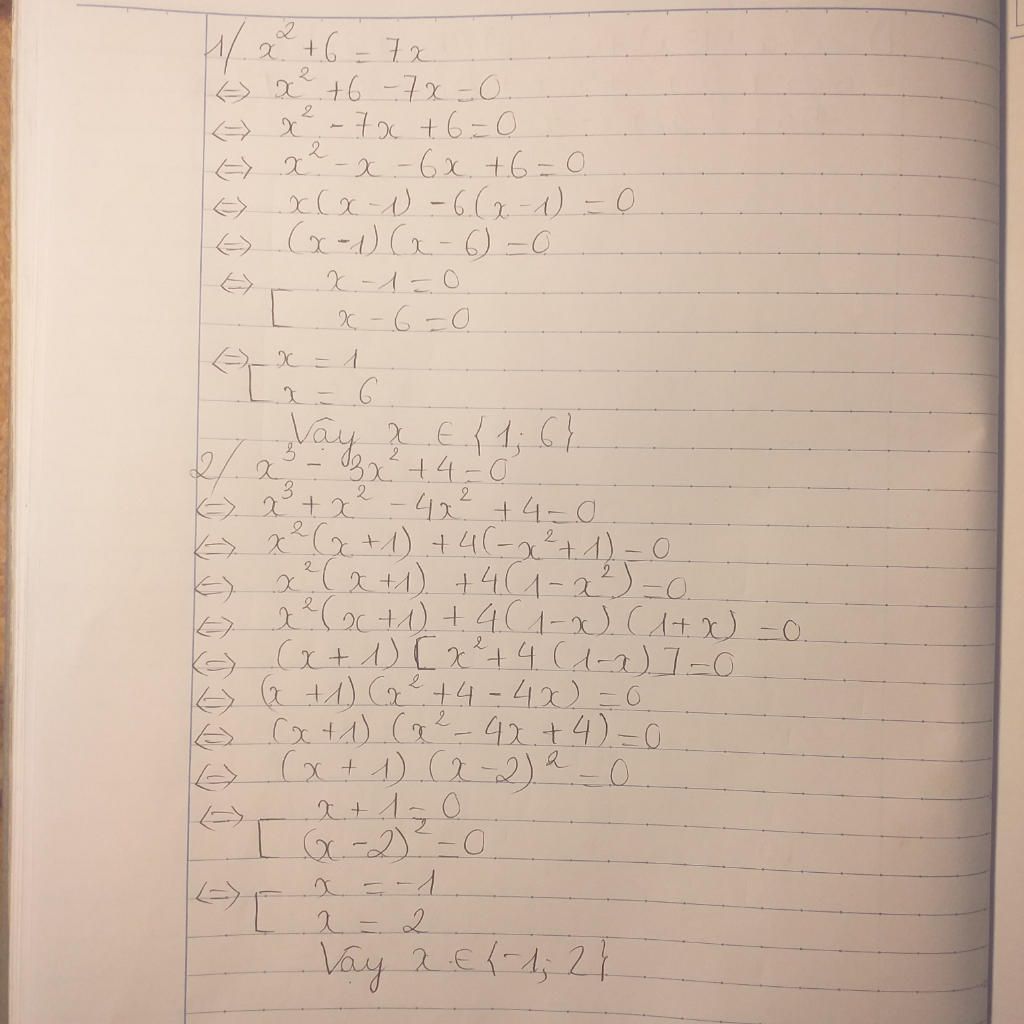 1/ x² + 6 = 7x
⇔ x² + 6 - 7x = 0
⇔ x² - 7x + 6 = 0
⇔ x² - x - 6x + 6 = 0
⇔ x(x - 1) - 6(x - 1) = 0
⇔ (x - 1)(x - 6) = 0
⇔ [ x - 1 = 0
x - 6 = 0
⇔ [ x = 1
x = 6
Vậy x ∈ {1; 6}
2/ x³ - 3x² + 4 = 0
⇔ x³ + x² - 4x² + 4 = 0
⇔ x²(x + 1) + 4(-x² + 1) = 0
⇔ x²(x + 1) + 4(1 - x²) = 0
⇔ x²(x + 1) + 4(1 - x)(1 + x) = 0
⇔ (x + 1)[x² + 4(1 - x)] = 0
⇔ (x + 1)(x² + 4 - 4x) = 0
⇔ (x + 1)(x² - 4x + 4) = 0
⇔ (x + 1)(x - 2)² = 0
⇔ [ x + 1 = 0
(x - 2)² = 0
⇔ [ x = -1
x = 2
Vậy x ∈ {-1; 2}